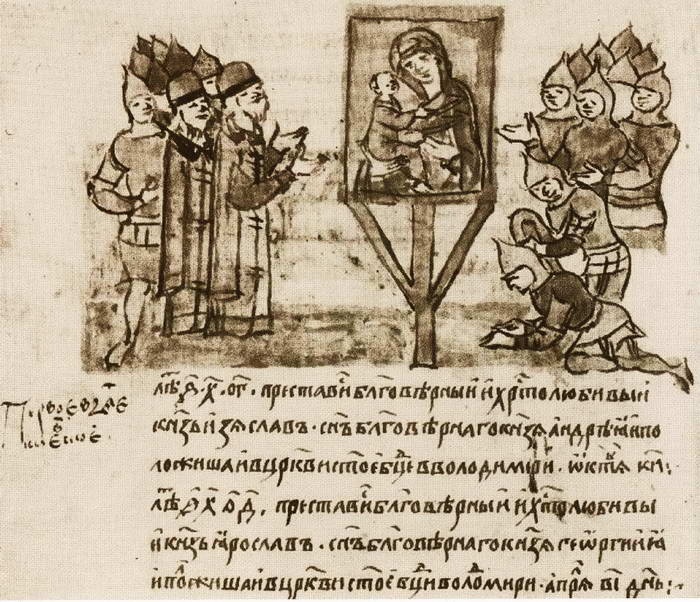 Первое взѧтїе
киевское
лѣ҃ ҂ѕ҃ · х҃ · ог҃ · преставиⷭ блг҃овѣрныи и хрⷭ҇толюбивыи
кн҃зь изѧславъ · сн҃ъ блг҃овѣрнаго кн҃зѧ андрѣꙗ и по
ложиша и в цр҃кви ст҃ое бц҃е в володимѣри · ѡктѧ к҃и:
лѣ҃ ҂ѕ҃ х҃ о҃д, преставиⷭ блг҃овѣрныи и хрⷭ҇толюбивы
и кн҃зь ꙗрославъ · сн҃ъ блг҃овѣрнаго кн҃зѧ геѡргиꙗ
и положиша и в цр҃кви ст҃ое бц҃и володимири · апрⷧѧ в҃і дн҃ь: